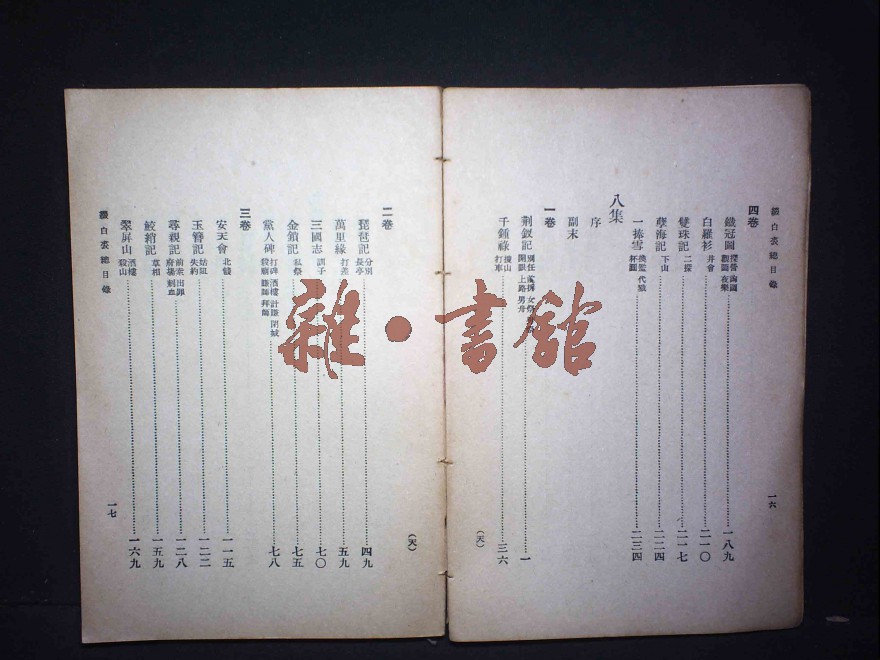 綴白裘總目錄
一六
四卷
鐵冠圖 探營 詢圖 觀圖 夜樂 一八九
白羅衫 井會 二一〇
雙珠記 二探 二一七
孽海記 下山 二二四
一捧雪 換監 代戮 杯圓 二三四
八集
序
副末
一卷
荊釵記 別任 前拆 女 開眼 上路 男舟 一
千鍾祿 搜山 打車 三六
(天)
二卷
琵琶記 分別 長亭 四九
萬里緣 打差 五九
三國志 訓子 七〇
金鎖記 私祭 七五
黨人碑 打碑 酒樓 計賺 閉城 殺廟 賺師 拜師 七八
三卷
安天會 北餞 一一五
玉簪記 姑阻 失約 一二二
尋親記 前索 出罪 府場 刺血 一二八
鮫綃記 草相 一五九
翠屏山 酒樓 殺山 一六九
綴白裘總目錄
一七
(天)
雜·書館